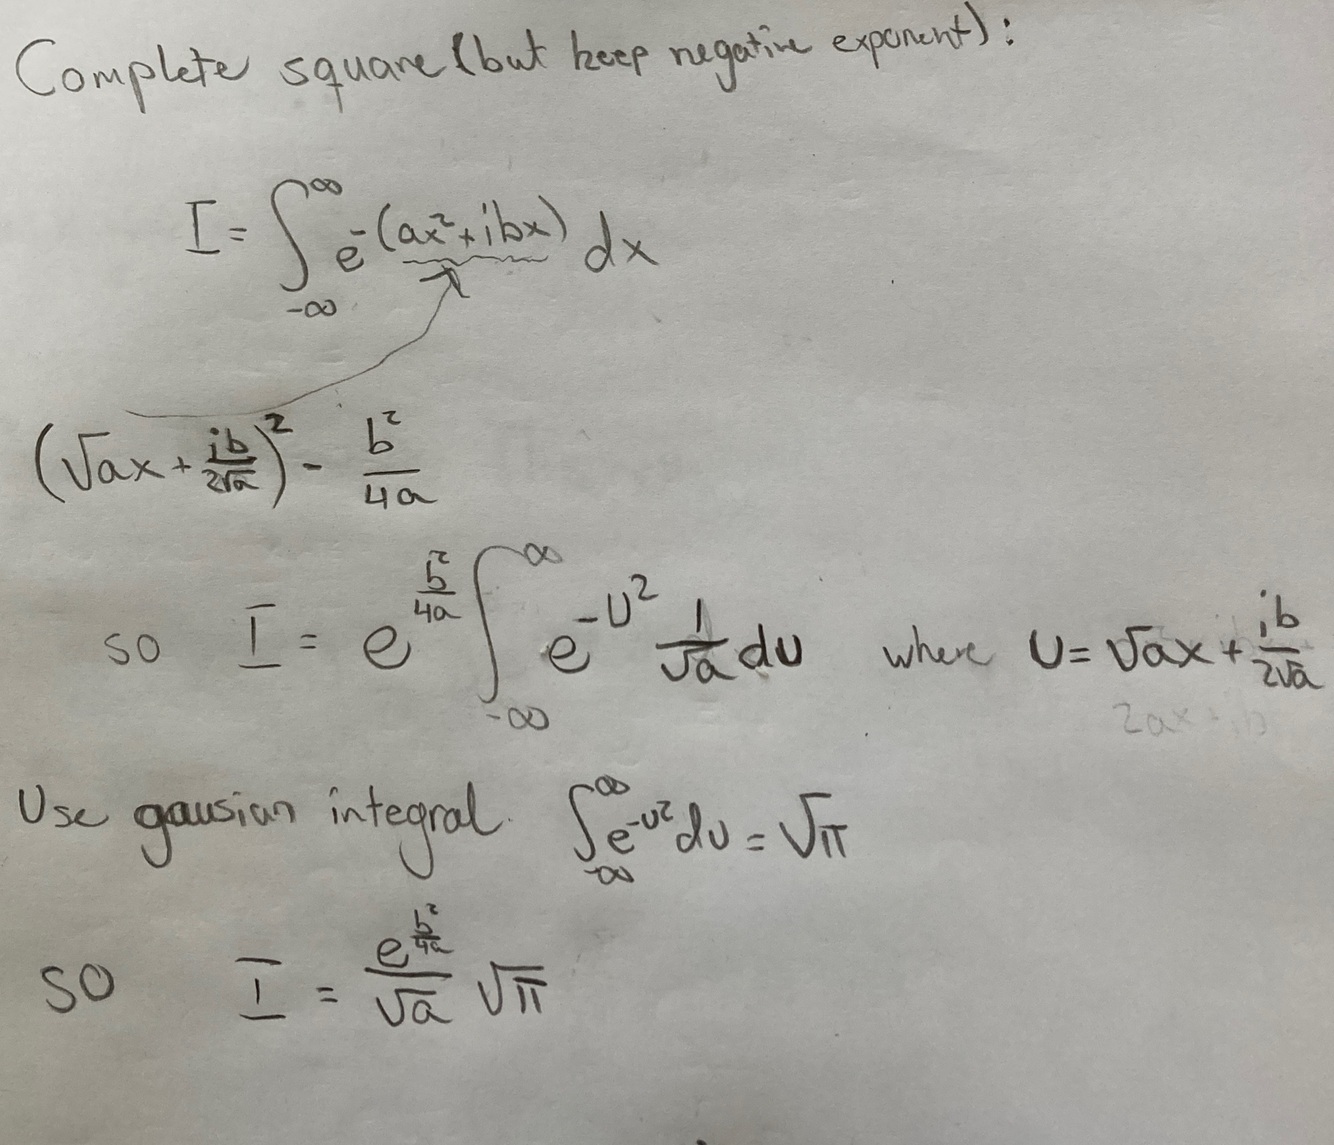 Complete square (but keep negative exponent):
I = ∫_{-∞}^{∞} e^{-(ax²+ibx)} dx
(√a x + ib/(2√a))² - b²/(4a)
so I = e^{b²/(4a)} ∫_{-∞}^{∞} e^{-U²} 1/√a dU where U = √a x + ib/(2√a)
2ax + ib
Use gausian integral. ∫_{-∞}^{∞} e^{-U²} dU = √π
so I = e^{b²/(4a)}/√a √π